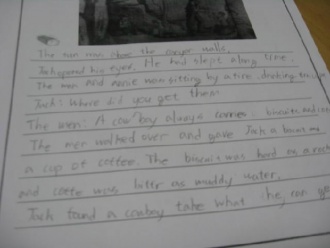 The two men above the canyer walls.
Jack opened his eyes. He had slept along time.
The men and were man sitting by a fire, drinking
Jack: Where did you get them
The men: A cowboy always carries biscuits and
The men walked over and gave Jack a biscuit and
a cup of coffee. The biscuit was hard as a rock
and coffee was bitter as muddy water.
Jack found a cowboy take what he can get